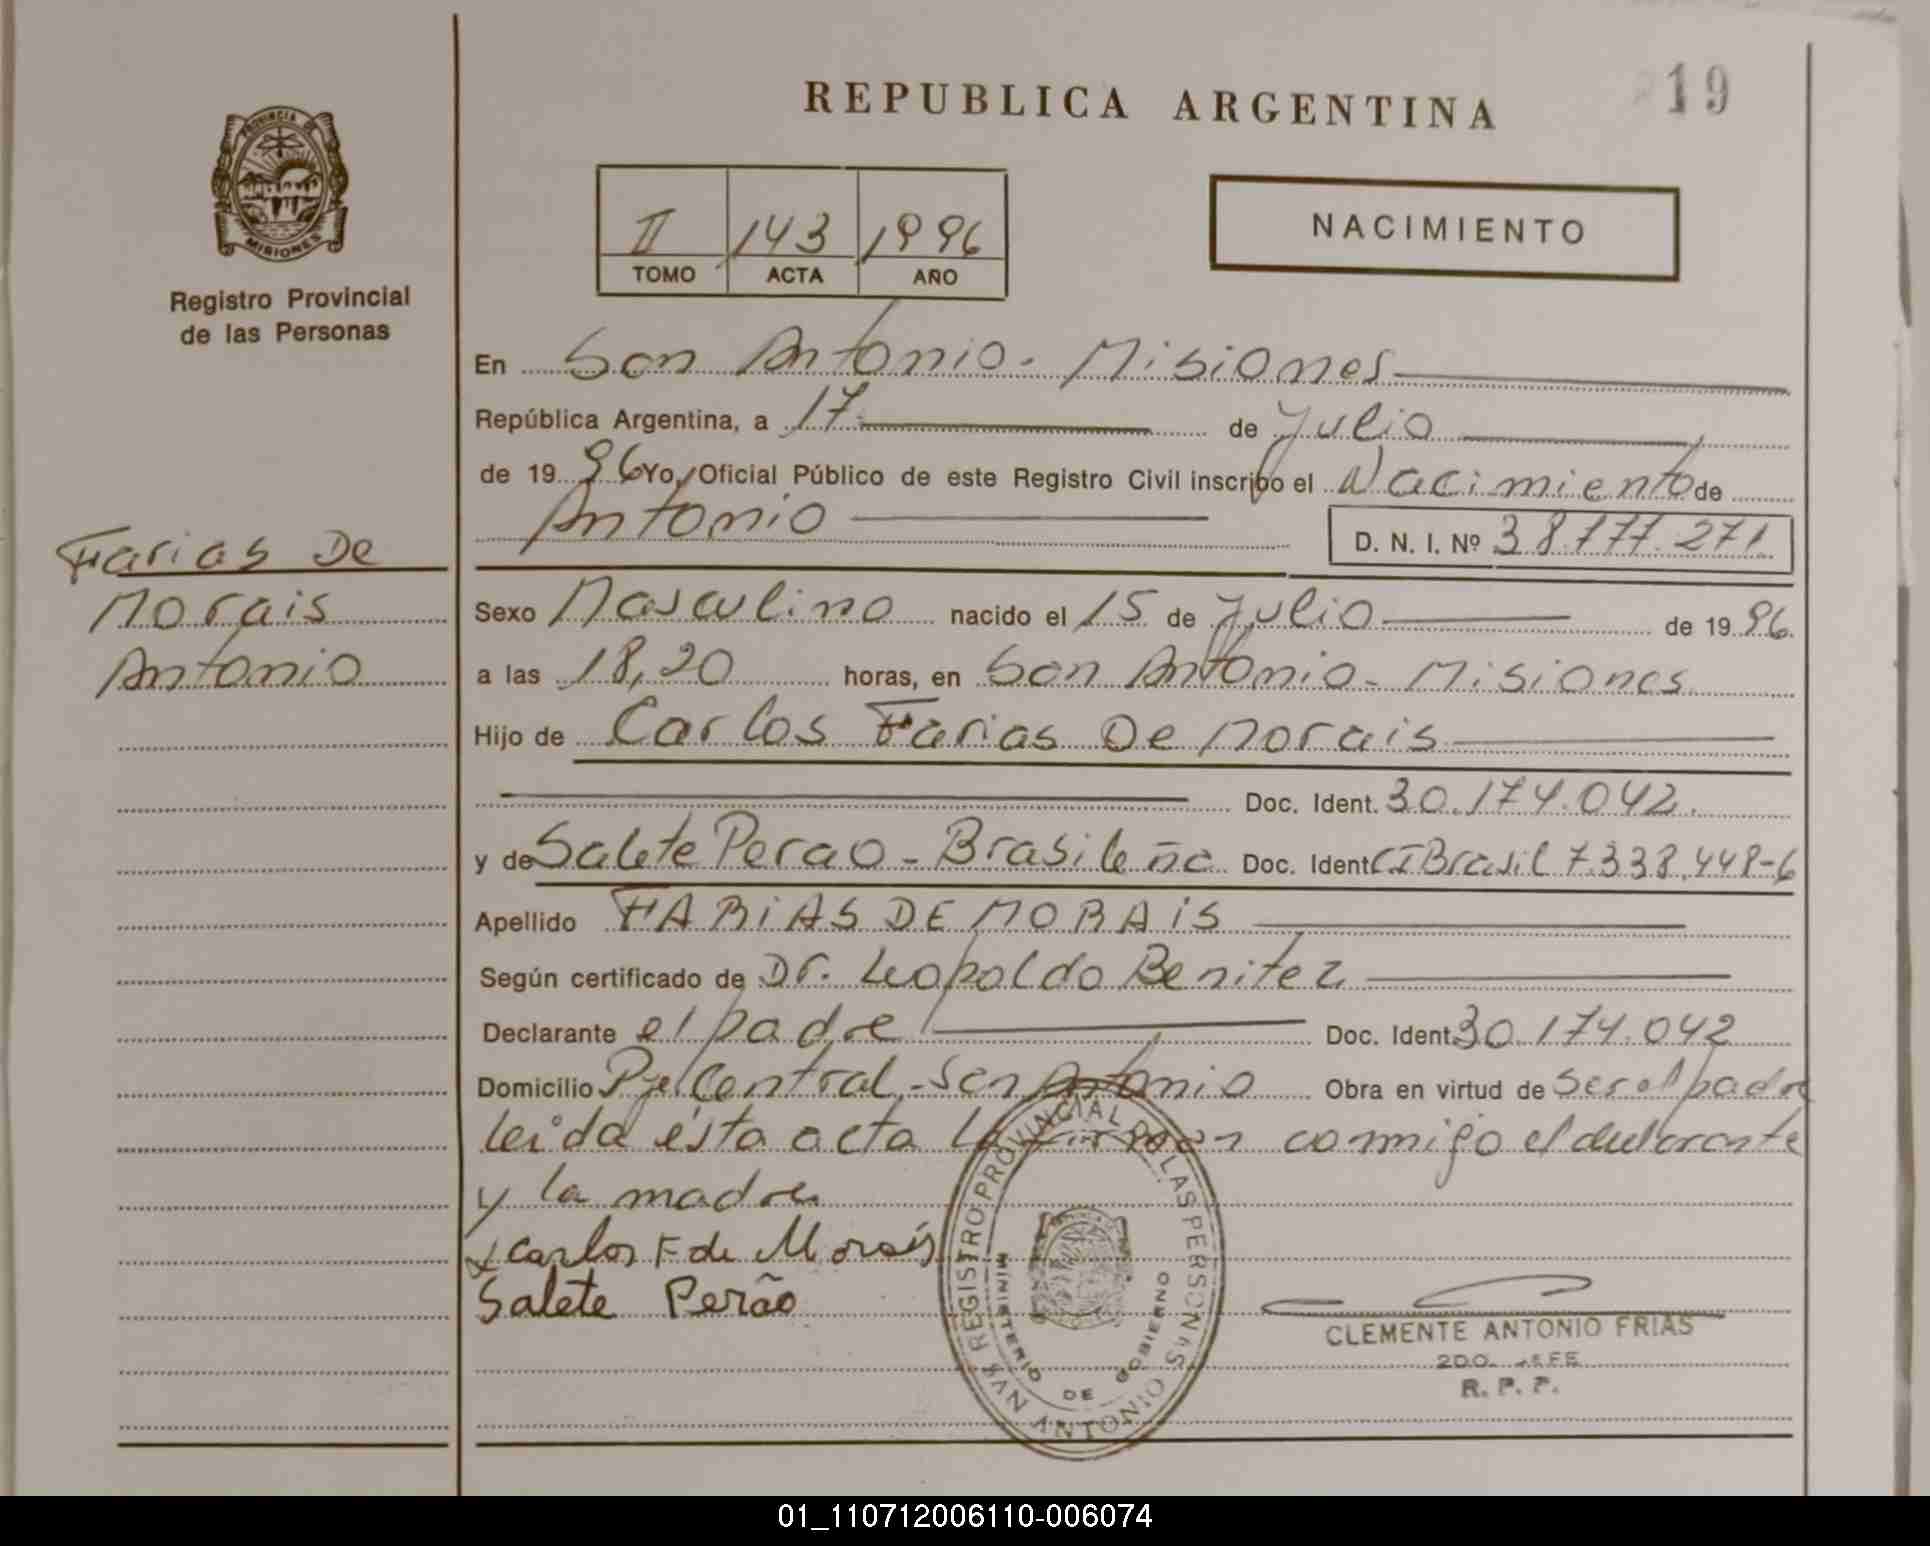 REPUBLICA ARGENTINA
19
PROVINCIA DE
MISIONES
Registro Provincial
de las Personas
II 143 1996
TOMO ACTA AÑO
NACIMIENTO
En San Antonio - Misiones
República Argentina, a 17 de Julio
de 19 96 Yo, Oficial Público de este Registro Civil inscribo el Nacimiento de
Antonio D. N. I. Nº 38.177.271
Farias De
Morais
Antonio
Sexo Masculino nacido el 15 de Julio de 19 96
a las 18,20 horas, en San Antonio - Misiones
Hijo de Carlos Farias De Morais
Doc. Ident. 30.174.042.
y de Salete Perao - Brasileña Doc. Ident CI Brasil 7.338.448-6
Apellido FARIAS DE MORAIS
Según certificado de Dr. Leopoldo Benitez
Declarante el padre Doc. Ident. 30.174.042
Domicilio Pje Central - San Antonio Obra en virtud de ser el padre
leida ésta acta la firman conmigo el declarante
y la madre
x Carlos F de Morais
Salete Perão
REGISTRO PROVINCIAL DE LAS PERSONAS
MINISTERIO DE GOBIERNO
SAN ANTONIO
CLEMENTE ANTONIO FRIAS
2DO. JEFE
R. P. P.
01_110712006110-006074